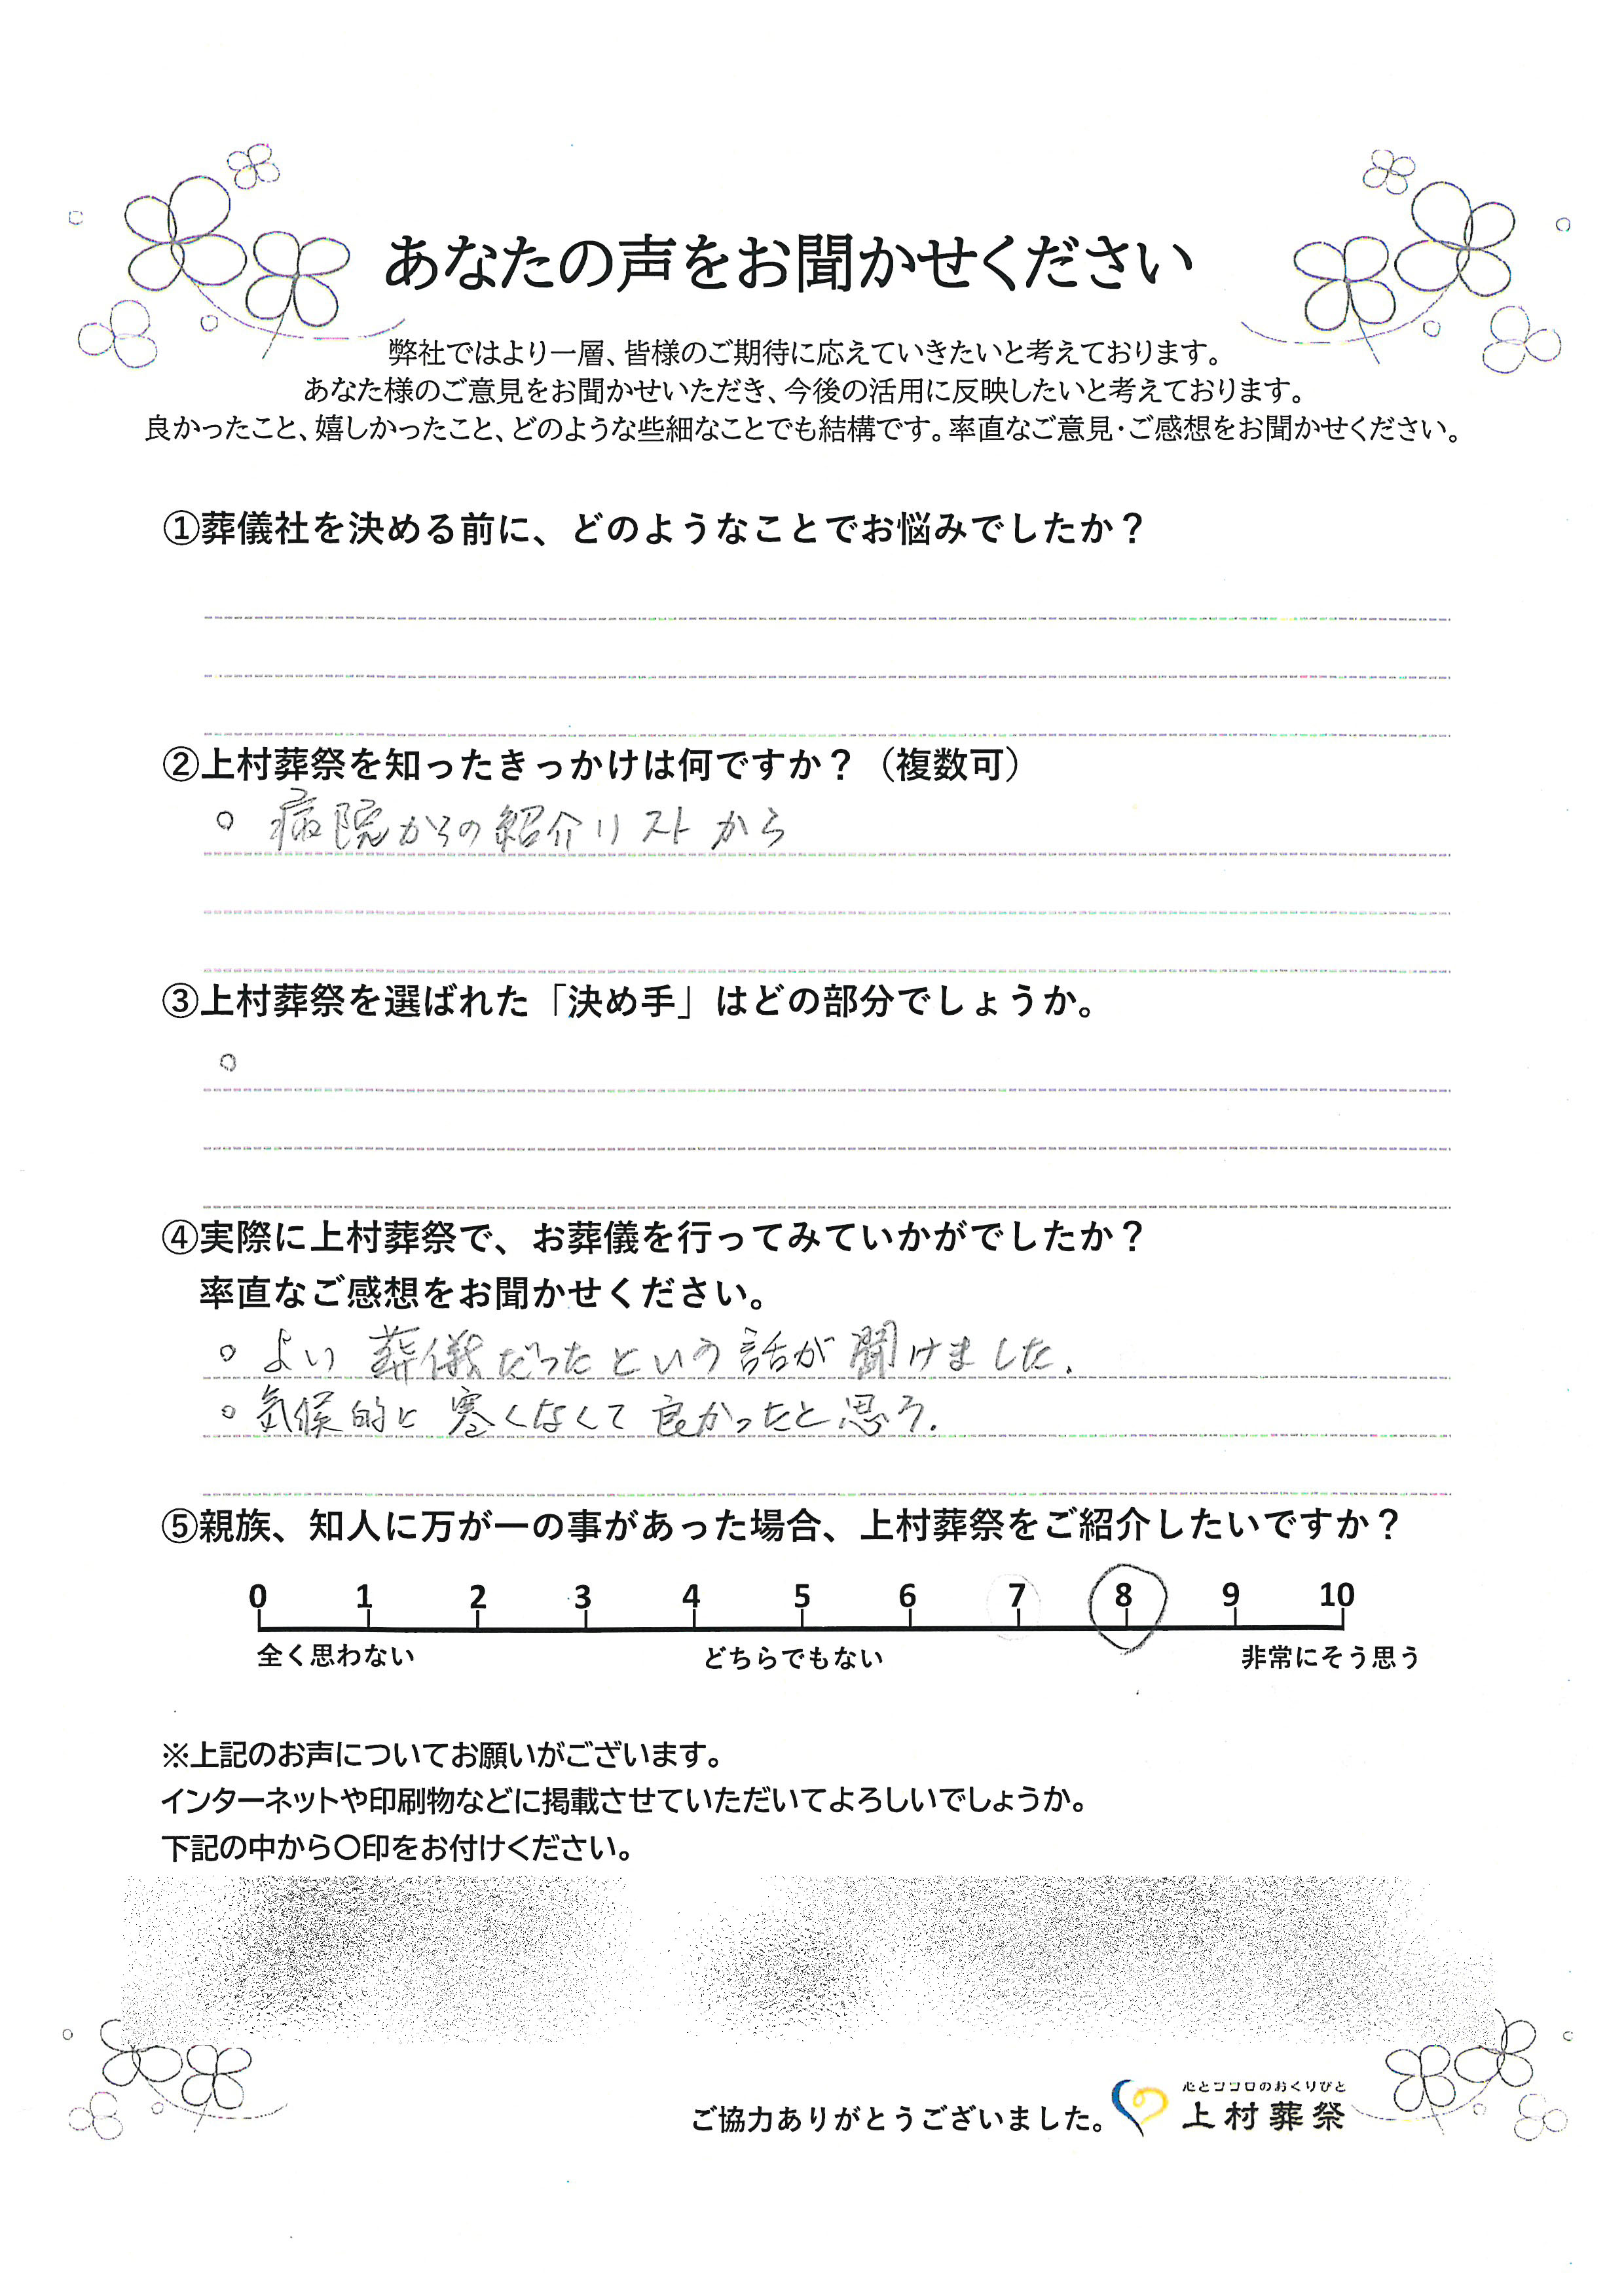 あなたの声をお聞かせください
弊社ではより一層、皆様のご期待に応えていきたいと考えております。
あなた様のご意見をお聞かせいただき、今後の活用に反映したいと考えております。
良かったこと、嬉しかったこと、どのような些細なことでも結構です。率直なご意見・ご感想をお聞かせください。
①葬儀社を決める前に、どのようなことでお悩みでしたか？
②上村葬祭を知ったきっかけは何ですか？（複数可）
○ 病院からの紹介リストから
③上村葬祭を選ばれた「決め手」はどの部分でしょうか。
○
④実際に上村葬祭で、お葬儀を行ってみていかがでしたか？
率直なご感想をお聞かせください。
○ よい葬儀だったという話が聞けました.
○ 気候的に寒くなくて良かったと思う.
⑤親族、知人に万が一の事があった場合、上村葬祭をご紹介したいですか？
0 1 2 3 4 5 6 7 8 9 10
全く思わない どちらでもない 非常にそう思う
※上記のお声についてお願いがございます。
インターネットや印刷物などに掲載させていただいてよろしいでしょうか。
下記の中から〇印をお付けください。
心とココロのおくりびと
ご協力ありがとうございました。 上村葬祭